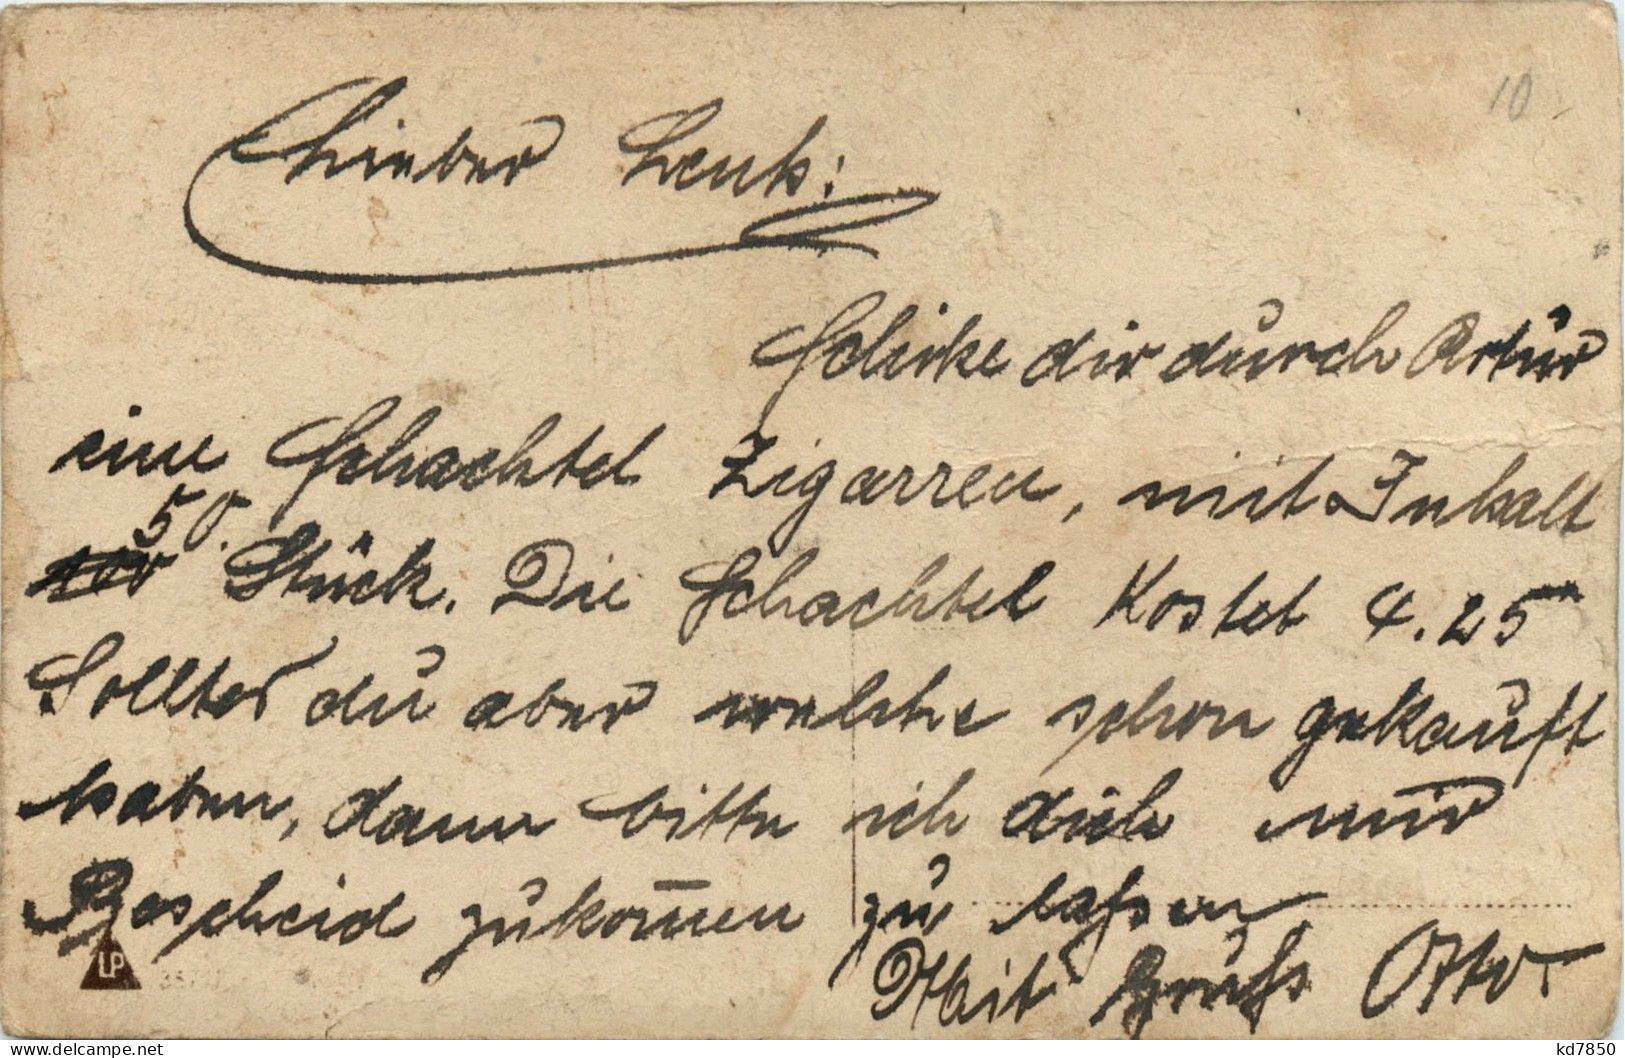 10
Lieber Leuk:
Schicke dir durch Artur
eine Schachtel Zigarren, mit Inhalt
50.
Stück. Die Schachtel Kostet 4.25
Solltes du aber welche schon gekauft
haben, dann bitte ich dich mir
Bescheid zukom̄en zu lassen
Mit Gruß Otto
LP
kd7850
www.delcampe.net